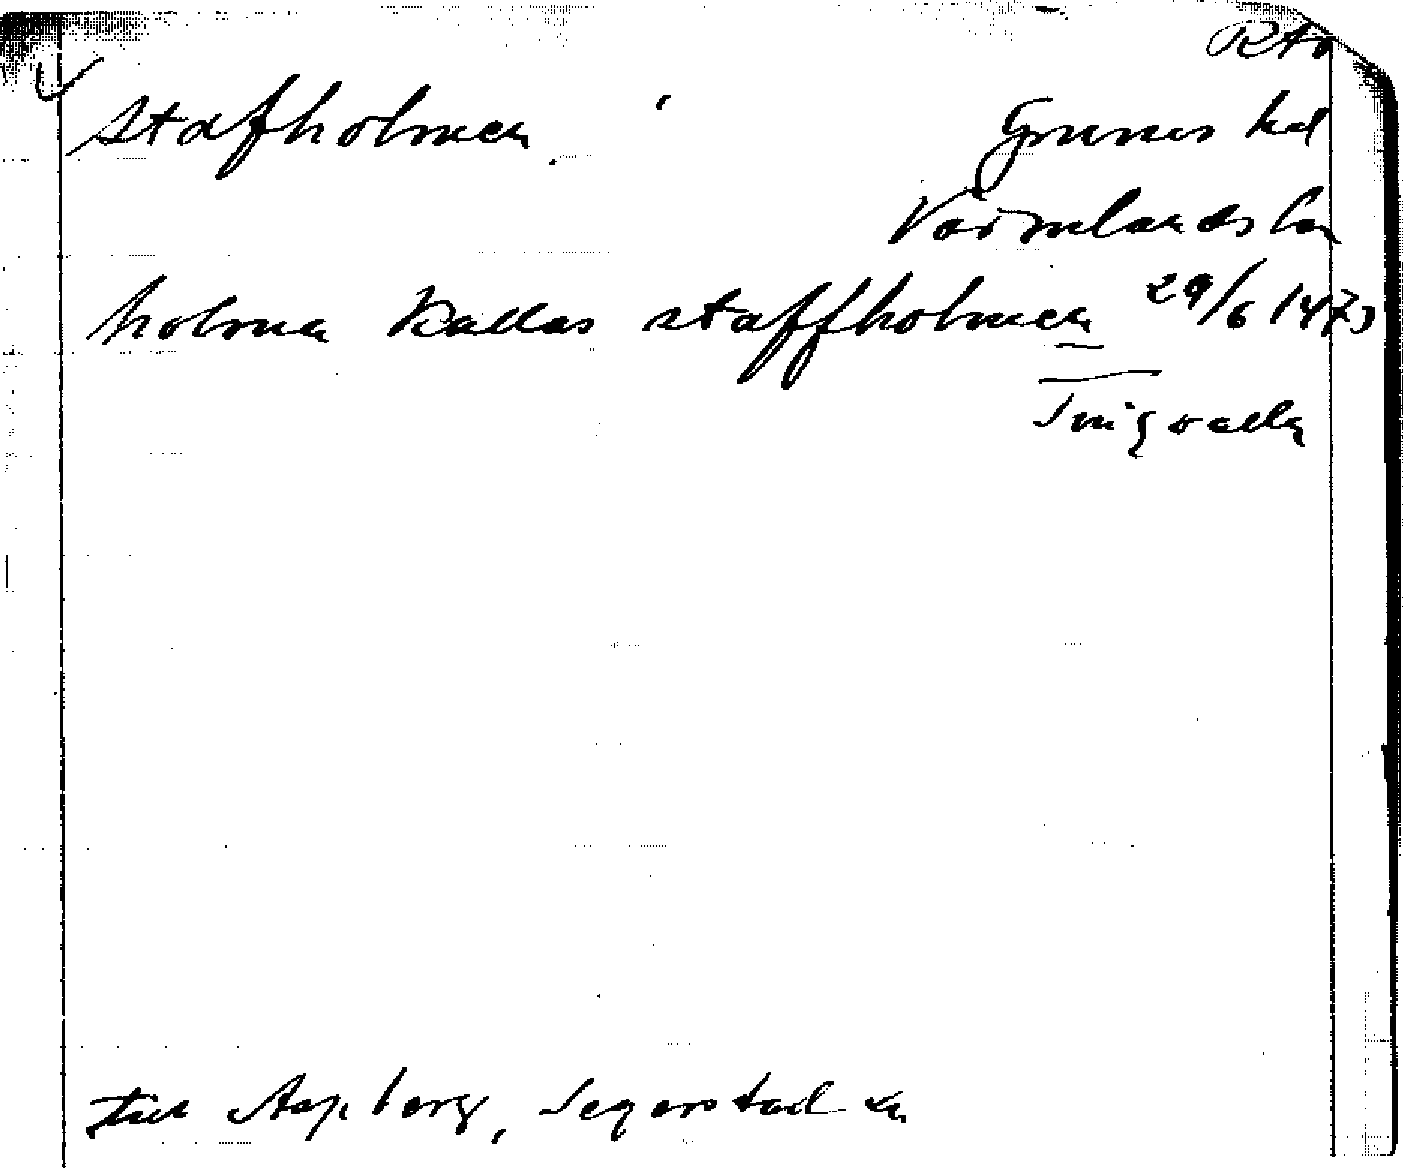 RAp
Stafholmen
Grums hd
Värmlands län
holmen kallas staffholmen 29/6 1473
Tingvalla
till Aspberg, Segerstad sn